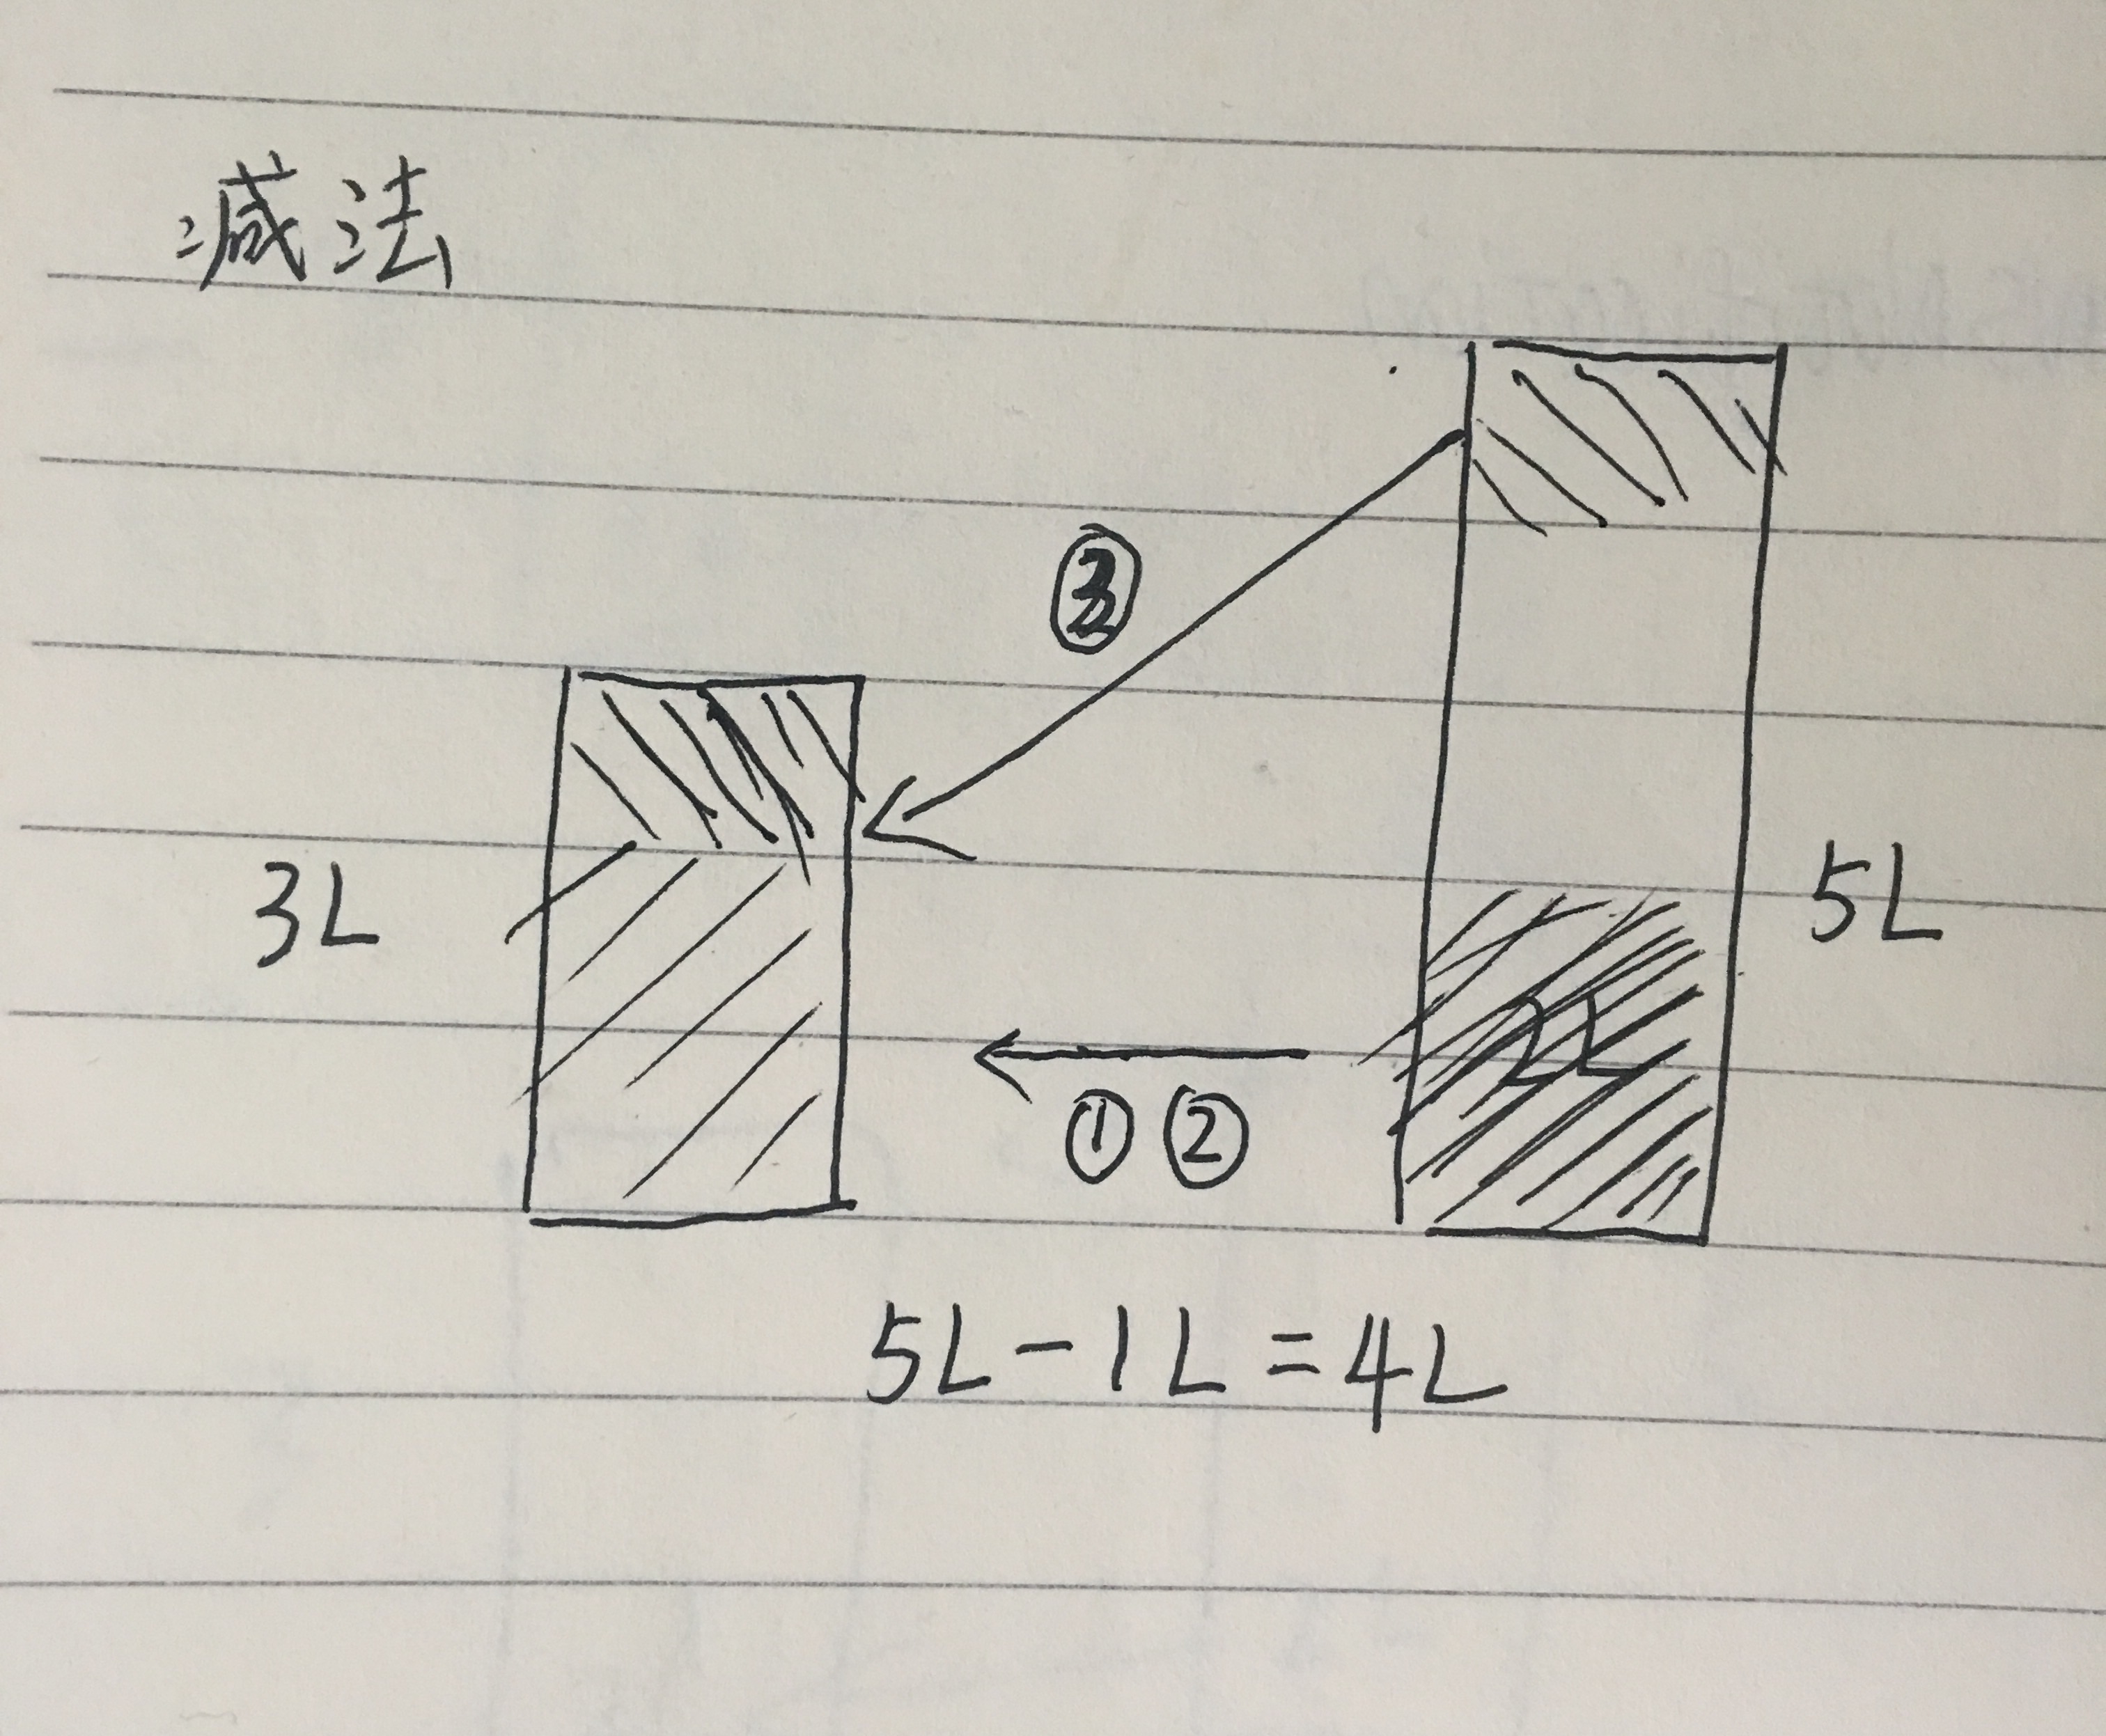 减法
③
3L
5L
2L
① ②
5L-1L=4L